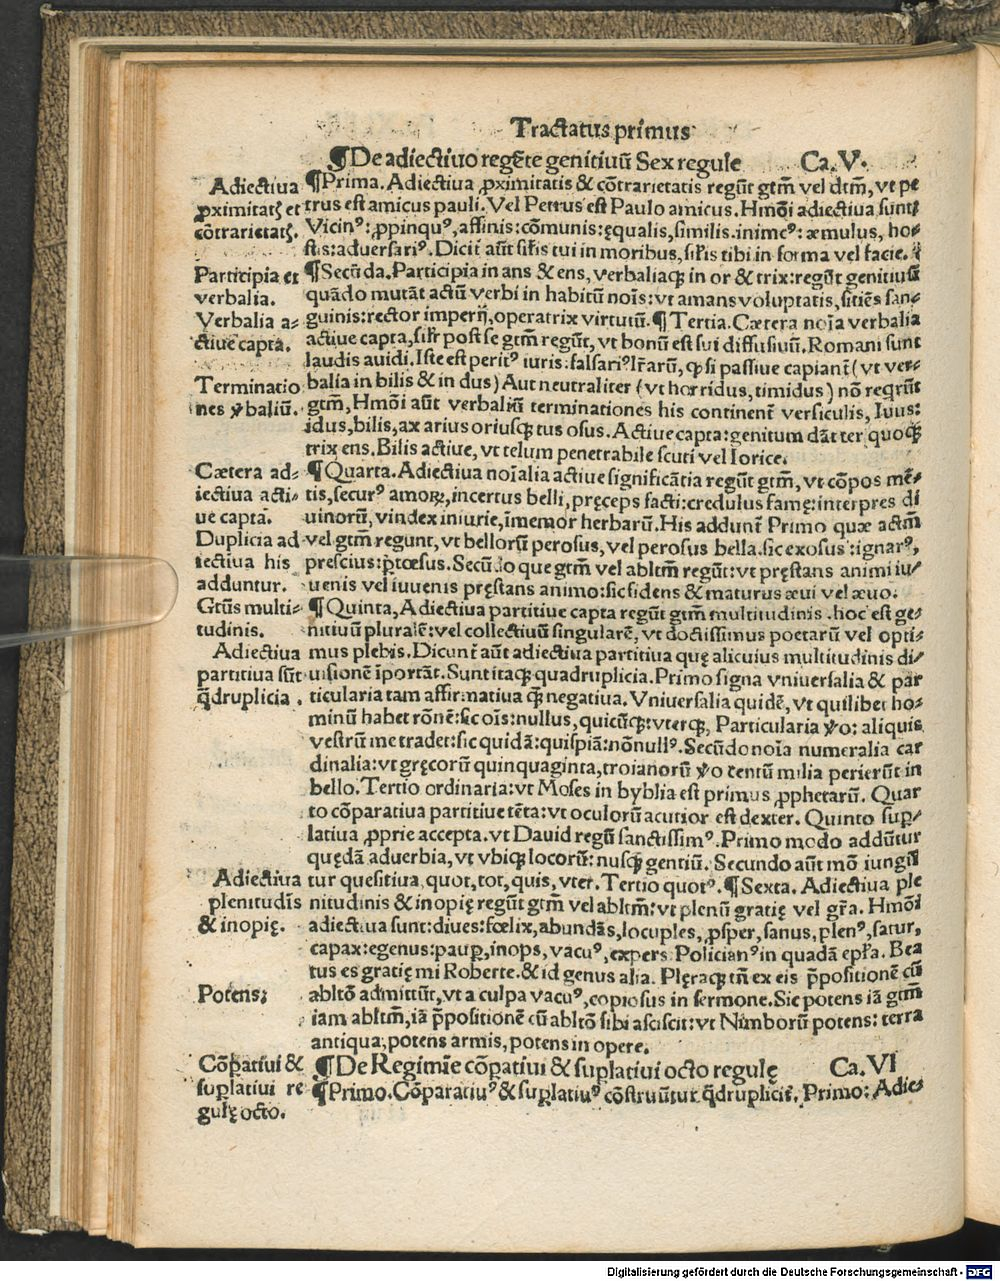 Tractatus primus
¶De adiectiuo regēte genitiuū Sex regule Ca.V.
Adiectiua
ꝓximitatꝭ et
cōtrarietatꝭ.
¶Prima. Adiectiua ꝓximitatis & cōtrarietatis regūt gtm̄ vel dtm̄, vt pe
trus est amicus pauli. Vel Petrus est Paulo amicus. Hmōi adiectiua sunt:
Vicinꝰ: ꝓpinquꝰ, affinis: cōmunis: ęqualis, similis. inimcꝰ: æmulus, ho⸗
stis: aduersariꝰ. Dicit̄ aūt sił̄is tui in moribus, sił̄is tibi in forma vel facie.
Participia et
verbalia.
Verbalia a⸗
ctiue capta.
¶Secūda. Participia in ans & ens, verbaliaqꝫ in or & trix: regūt genitiuū
quādo mutāt actū verbi in habitū noīs: vt amans voluptatis, sitiēs san⸗
guinis: rector imperij, operatrix virtutū. ¶Tertia. Cætera noīa verbalia
actiue capta, sił̄r post se gtm̄ regūt, vt bonū est sui diffusiuū. Romani sunt
laudis auidi. Iste est peritꝰ iuris: falsariꝰ lr̄arū, ꝙ si passiue capiant̄ (vt ver⸗
Terminatio
nes ꝟbaliū.
balia in bilis & in dus) Aut neutraliter (vt horridus, timidus) nō reqrūt
gtm̄, Hmōi aūt verbaliū terminationes his continent̄ versiculis, Iuus:
idus, bilis, ax arius oriusqꝫ tus osus. Actiue capta: genitum dāt ter quoqꝫ
trix ens. Bilis actiue, vt telum penetrabile scuti vel lorice.
Cætera ad⸗
iectiua acti⸗
ue capta.
Duplicia ad
iectiua his
adduntur.
¶Quarta. Adiectiua noīalia actiue significātia regūt gtm̄, vt cōpos mē⸗
tis, securꝰ amoꝝ, incertus belli, pręceps facti: credulus famę: interpres di
uinorū, vindex iniurie, īmemor herbarū. His addunt̄ Primo quæ actm̄
vel gtm̄ regunt, vt bellorū perosus, vel perosus bella. sic exosus: ignarꝰ,
prescius: p̄tœsus. Secūdo que gtm̄ vel abltm̄ regūt: vt pręstans animi iu⸗
uenis vel iuuenis pręstans animo: sic fidens & maturus æui vel æuo.
Gtūs multi⸗
tudinis.
Adiectiua
partitiua sūt
q̄druplicia.
¶Quinta, Adiectiua partitiue capta regūt gtm̄ multitudinis. hoc est ge⸗
nitiuū pluralē: vel collectiuū singularē, vt doctissimus poetarū vel opti⸗
mus plebis. Dicunt̄ aūt adiectiua partitiua quę alicuius multitudinis di⸗
uisionē īportāt. Sunt itaqꝫ quadruplicia. Primo signa vniuersalia & par
ticularia tam affirmatiua qꝫ negatiua. Vniuersalia quidē, vt quilibet ho⸗
minū habet rōnē: sic oīs: nullus, quicūqꝫ: vterqꝫ, Particularia ꝟo: aliquis
vestrū me tradet: sic quidā: quispiā: nōnullꝰ. Secūdo noīa numeralia car
dinalia: vt gręcorū quinquaginta, troianorū ꝟo centū milia perierūt in
bello. Tertio ordinaria: vt Moses in byblia est primus ꝓphetarū. Quar
to cōparatiua partitiue tēta: vt oculorū acutior est dexter. Quinto suꝑ⸗
latiua ꝓprie accepta. vt Dauid regū sanctissimꝰ. Primo modo addūtur
quędā aduerbia, vt vbiqꝫ locorū: nusqꝫ gentiū. Secundo aūt mō iungūt
Adiectiua
plenitudīs
& inopię.
tur quesitiua, quot, tot, quis, vter. Tertio quotꝰ. ¶Sexta. Adiectiua ple
nitudinis & inopię regūt gtm̄ vel abltm̄: vt plenū gratię vel gr̄a. Hmōi
adiectiua sunt: diues: fœlix, abundās, locuples, ꝓsper, sanus, plenꝰ, satur,
capax: egenus: pauꝑ, inops, vacuꝰ, expers. Policianꝰ in quadā epł̄a. Bea
tus es gratię mi Roberte. & id genus alia. Plęraqꝫ tn̄ ex eis p̄positionē cū
Potens:
abltō admittūt, vt a culpa vacuꝰ, copiosus in sermone. Sic potens iā gtm̄
iam abltm̄, iā p̄positionē cū abltō sibi asciscit: vt Nimborū potens: terra
antiqua, potens armis, potens in opere.
Cōꝑatiui &
suꝑlatiui re
gulę octo.
¶De Regimīe cōꝑatiui & suꝑlatiui octo regulę Ca.VI
¶Primo. Cōparatiuꝰ & suꝑlatiuꝰ cōstruūtur q̄druplicit̄. Primo: Adie⸗
Digitalisierung gefördert durch die Deutsche Forschungsgemeinschaft - DFG